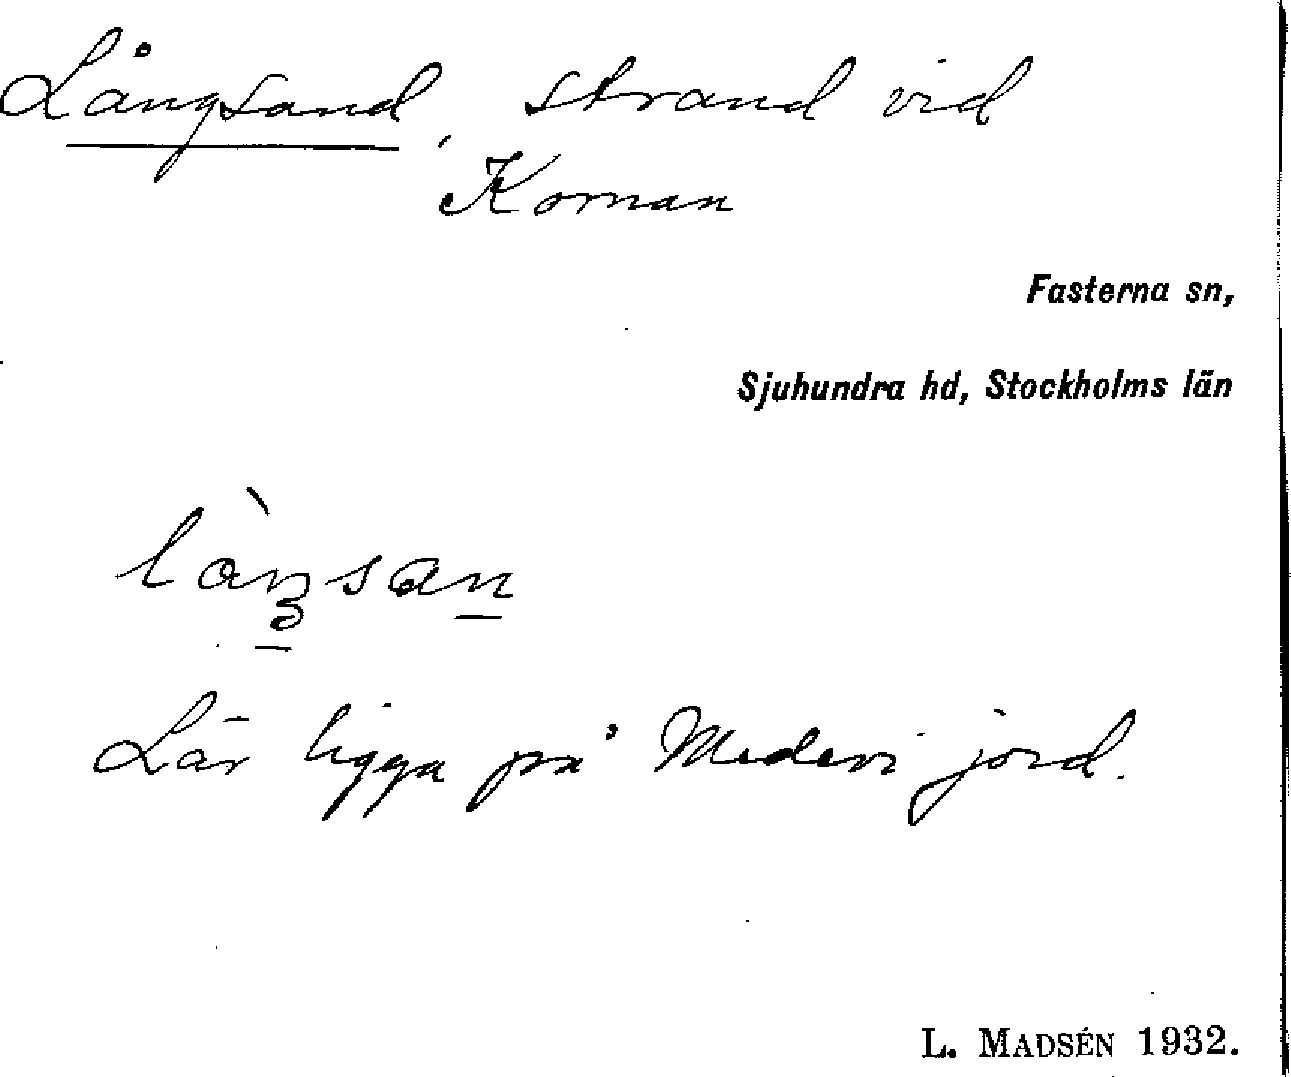 Långsand, strand vid
Kornan
Fasterna sn,
Sjuhundra hd, Stockholms län
Lär ligga på Mederi jord.
L. MADSÉN 1932.